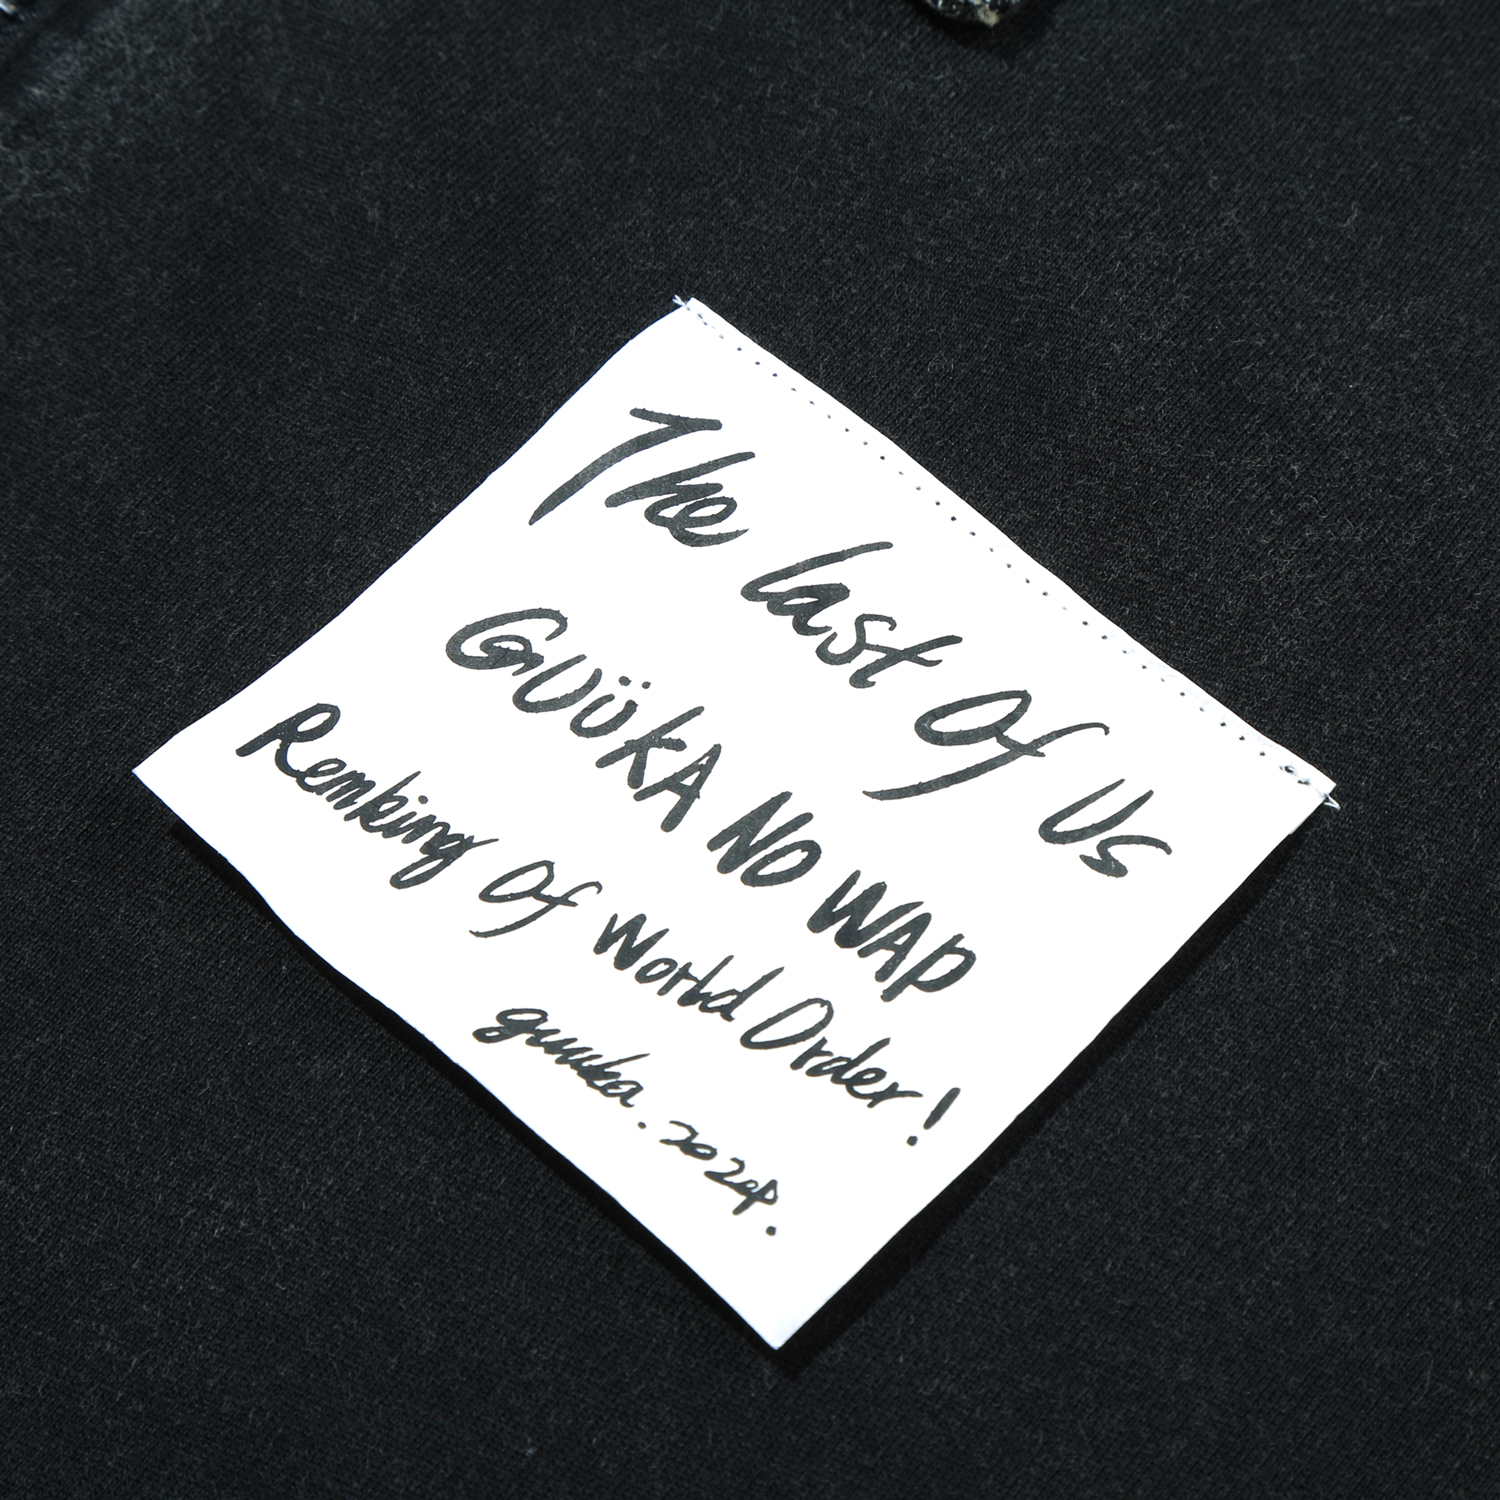 The last Of Us
GUÜKA NO WAP
Remking Of World Order!
guuka. 2024.